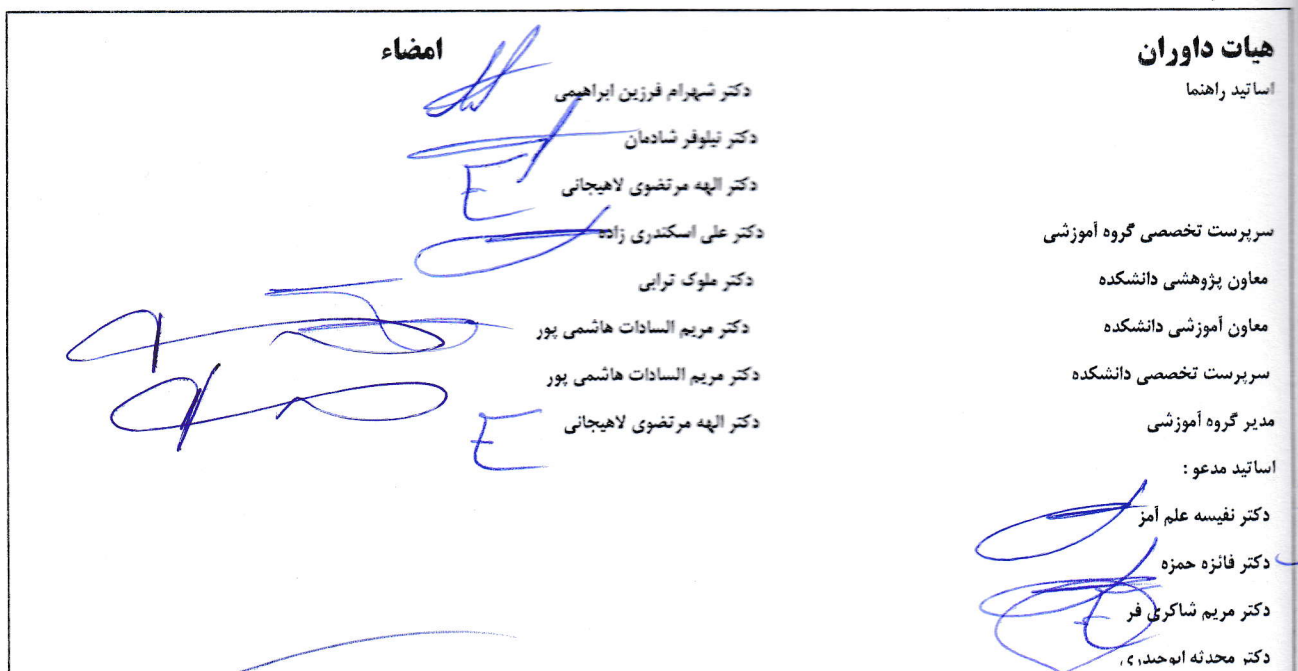 هیات داوران امضاء
اساتید راهنما دکتر شهرام فرزین ابراهیمی
دکتر نیلوفر شادمان
دکتر الهه مرتضوی لاهیجانی
سرپرست تخصصی گروه آموزشی دکتر علی اسکندری زاده
معاون پژوهشی دانشکده دکتر ملوک ترابی
معاون آموزشی دانشکده دکتر مریم السادات هاشمی پور
سرپرست تخصصی دانشکده دکتر مریم السادات هاشمی پور
مدیر گروه آموزشی دکتر الهه مرتضوی لاهیجانی
اساتید مدعو :
دکتر نفیسه علم آمز
دکتر فائزه حمزه
دکتر مریم شاکری فر
دکتر محدثه ابوحیدری